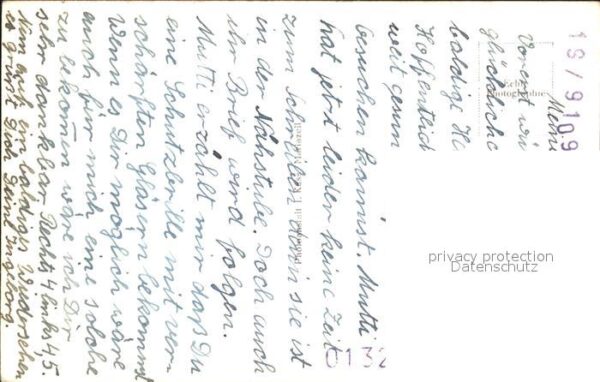 Meine
Vorerst
glückliche
baldige
Hoffentlich
weit genu
besuchen kannst. Mutti
hat jetzt leider keine Zeit
zum Schreiben denn sie ist
in der Nähstube. Doch auch
ihr Brief wird folgen.
Mutti erzählt mir daß Du
eine Schutzbrille mit ver-
schärften Gläsern bekommst
Wenn es Dir möglich wäre
auch für mich eine solche
zu bekommen wäre ich Dir
sehr dankbar Rechts 4 links 4,5.
Nun auf ein baldiges Wiedersehen
es grüßt Dich Deine Ingeborg.
Echte
Photographie
16/9109
0132
privacy protection
Datenschutz